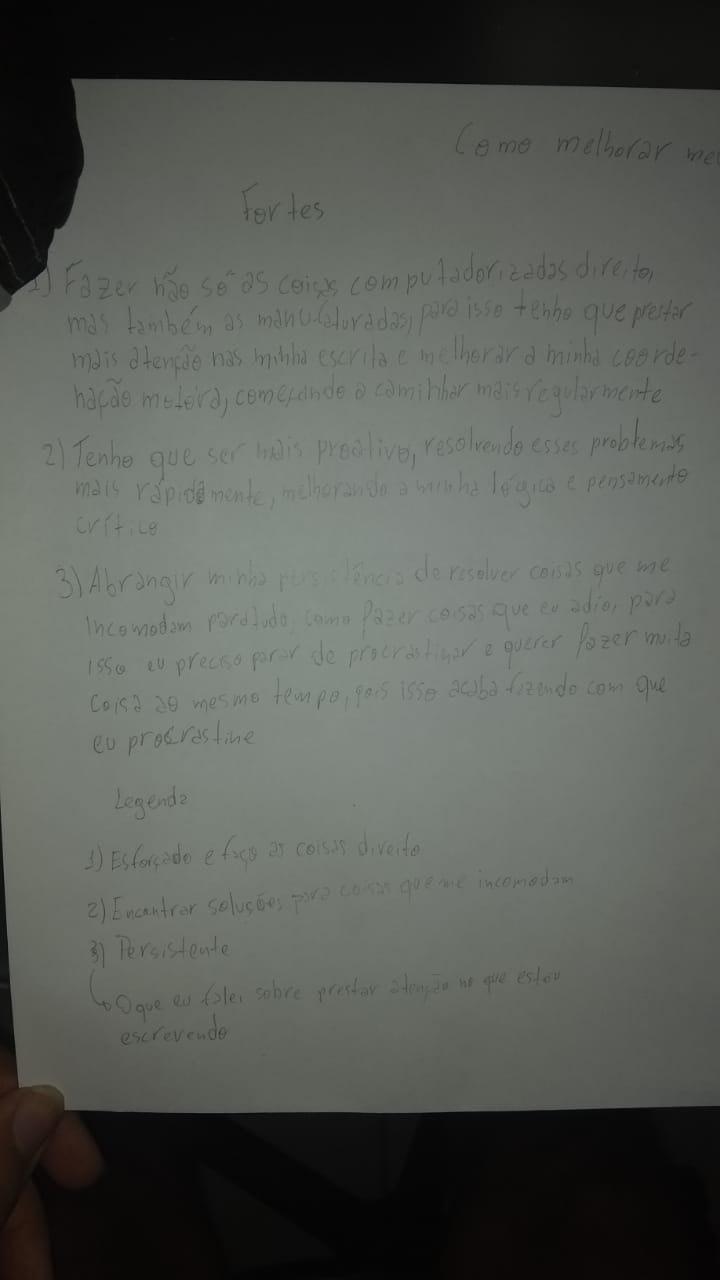 Como melhorar me
Fortes
1) Fazer não só as coisas computadorizadas direito,
mas também as manufaturadas, para isso tenho que prestar
mais atenção nas minha escrita e melhorar a minha coorde-
nação motora, começando a caminhar mais regularmente
2) Tenho que ser mais proativo, resolvendo esses problemas
mais rápidamente, melhorando a minha lógica e pensamento
crítico
3) Abrangir minha persistência de resolver coisas que me
incomodam para tudo, como fazer coisas que eu adio, para
isso eu preciso parar de procrastinar e querer fazer muita
coisa ao mesmo tempo, pois isso acaba fazendo com que
eu procrastine
Legenda
1) Esforçado e faço as coisas direito
2) Encontrar soluções para coisas que me incomodam
3) Persistente
↳ O que eu falei sobre prestar atenção no que estou
escrevendo